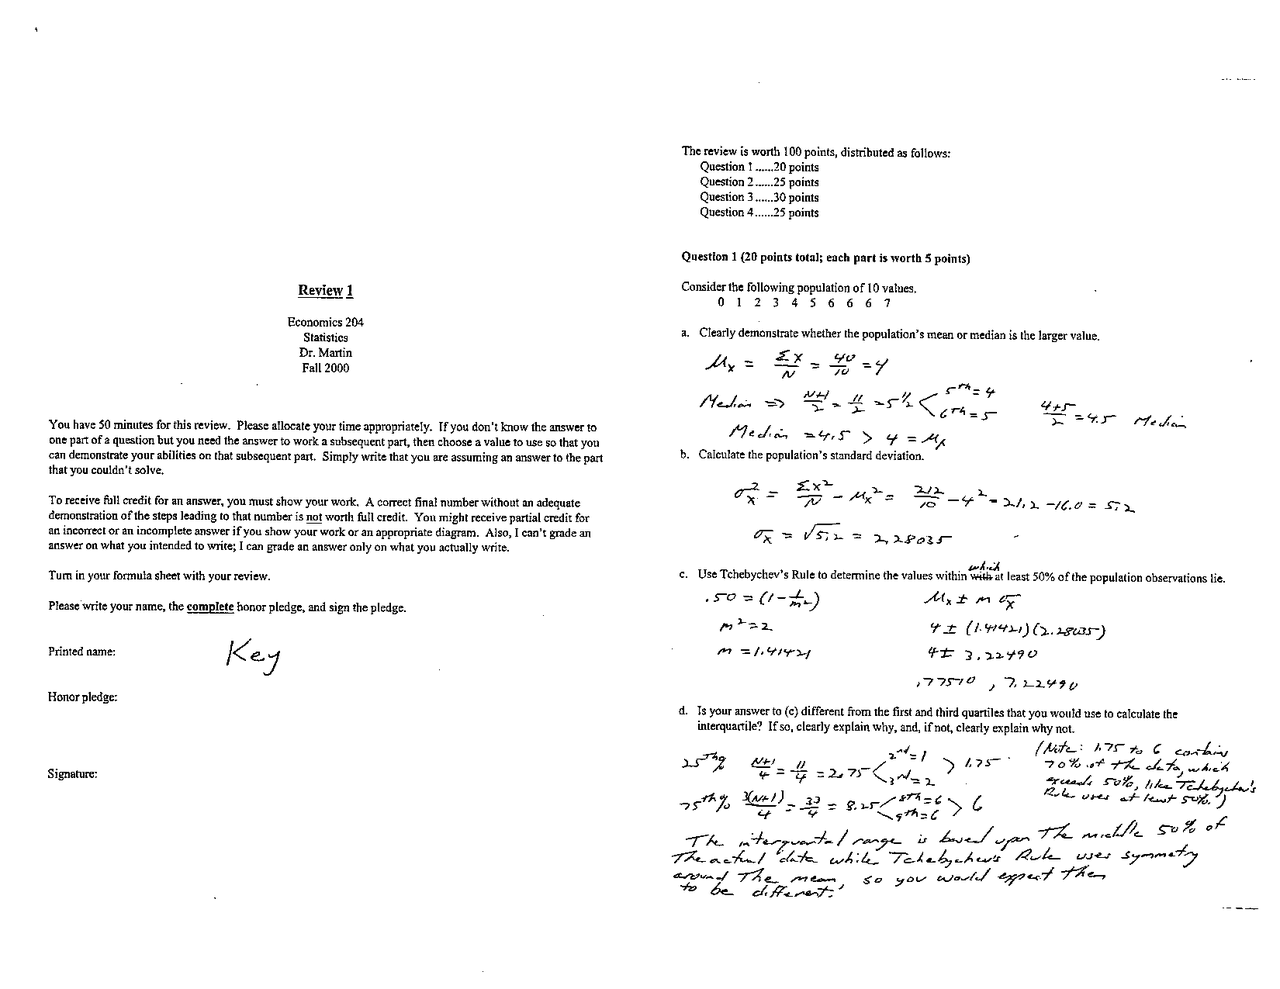 Review 1
Economics 204
Statistics
Dr. Martin
Fall 2000
You have 50 minutes for this review. Please allocate your time appropriately. If you don't know the answer to
one part of a question but you need the answer to work a subsequent part, then choose a value to use so that you
can demonstrate your abilities on that subsequent part. Simply write that you are assuming an answer to the part
that you couldn't solve.
To receive full credit for an answer, you must show your work. A correct final number without an adequate
demonstration of the steps leading to that number is not worth full credit. You might receive partial credit for
an incorrect or an incomplete answer if you show your work or an appropriate diagram. Also, I can't grade an
answer on what you intended to write; I can grade an answer only on what you actually write.
Turn in your formula sheet with your review.
Please write your name, the complete honor pledge, and sign the pledge.
Printed name: Key
Honor pledge:
Signature:
The review is worth 100 points, distributed as follows:
Question 1 ......20 points
Question 2 ......25 points
Question 3 ......30 points
Question 4 ......25 points
Question 1 (20 points total; each part is worth 5 points)
Consider the following population of 10 values.
0 1 2 3 4 5 6 6 6 7
a. Clearly demonstrate whether the population's mean or median is the larger value.
μx = Σx/N = 40/10 = 4
Median ⇒ (N+1)/2 = 11/2 = 5 1/2 < 5th = 4 6th = 5 (4+5)/2 = 4.5 Median
Median = 4.5 > 4 = μx
b. Calculate the population's standard deviation.
σx² = Σx²/N − μx² = 212/10 − 4² = 21.2 − 16.0 = 5.2
σx = √5.2 = 2.28035
c. Use Tchebychev's Rule to determine the values within with which at least 50% of the population observations lie.
.50 = (1 − 1/m²) μx ± m σx
m² = 2 4 ± (1.41421)(2.28035)
m = 1.41421 4 ± 3.22490
.77510 , 7.22490
d. Is your answer to (c) different from the first and third quartiles that you would use to calculate the
interquartile? If so, clearly explain why, and, if not, clearly explain why not.
25th% (N+1)/4 = 11/4 = 2.75 < 2nd = 1 3rd = 2 > 1.75
75th% 3(N+1)/4 = 33/4 = 8.25 < 8th = 6 9th = 6 > 6
(Note: 1.75 to 6 contain
70% of the data, which
exceeds 50%, like Tchebychev's
Rule uses at least 50%.)
The interquartal range is based upon the middle 50% of
the actual data while Tchebychev's Rule uses symmetry
around the mean, so you would expect them
to be different.